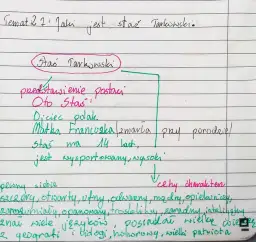 Temat 21: Jaki jest staś Tarkowski.
Staś Tarkowski
przedstawienie postaci
Oto Staś:
Ojciec polak
Matka Francuska (zmarła przy porodzie)
staś ma 14 lat,
jest wysportowany, wysoki
pewny siebie
cechy charakteru
szczery, otwarty, ufny, odważny, mądry, opiekuńczy,
opanowany, troskliwy, zaradny, inteligentny
zna wiele języków posiada wielką
z geografii i biologi, honorowy, wielki patriota